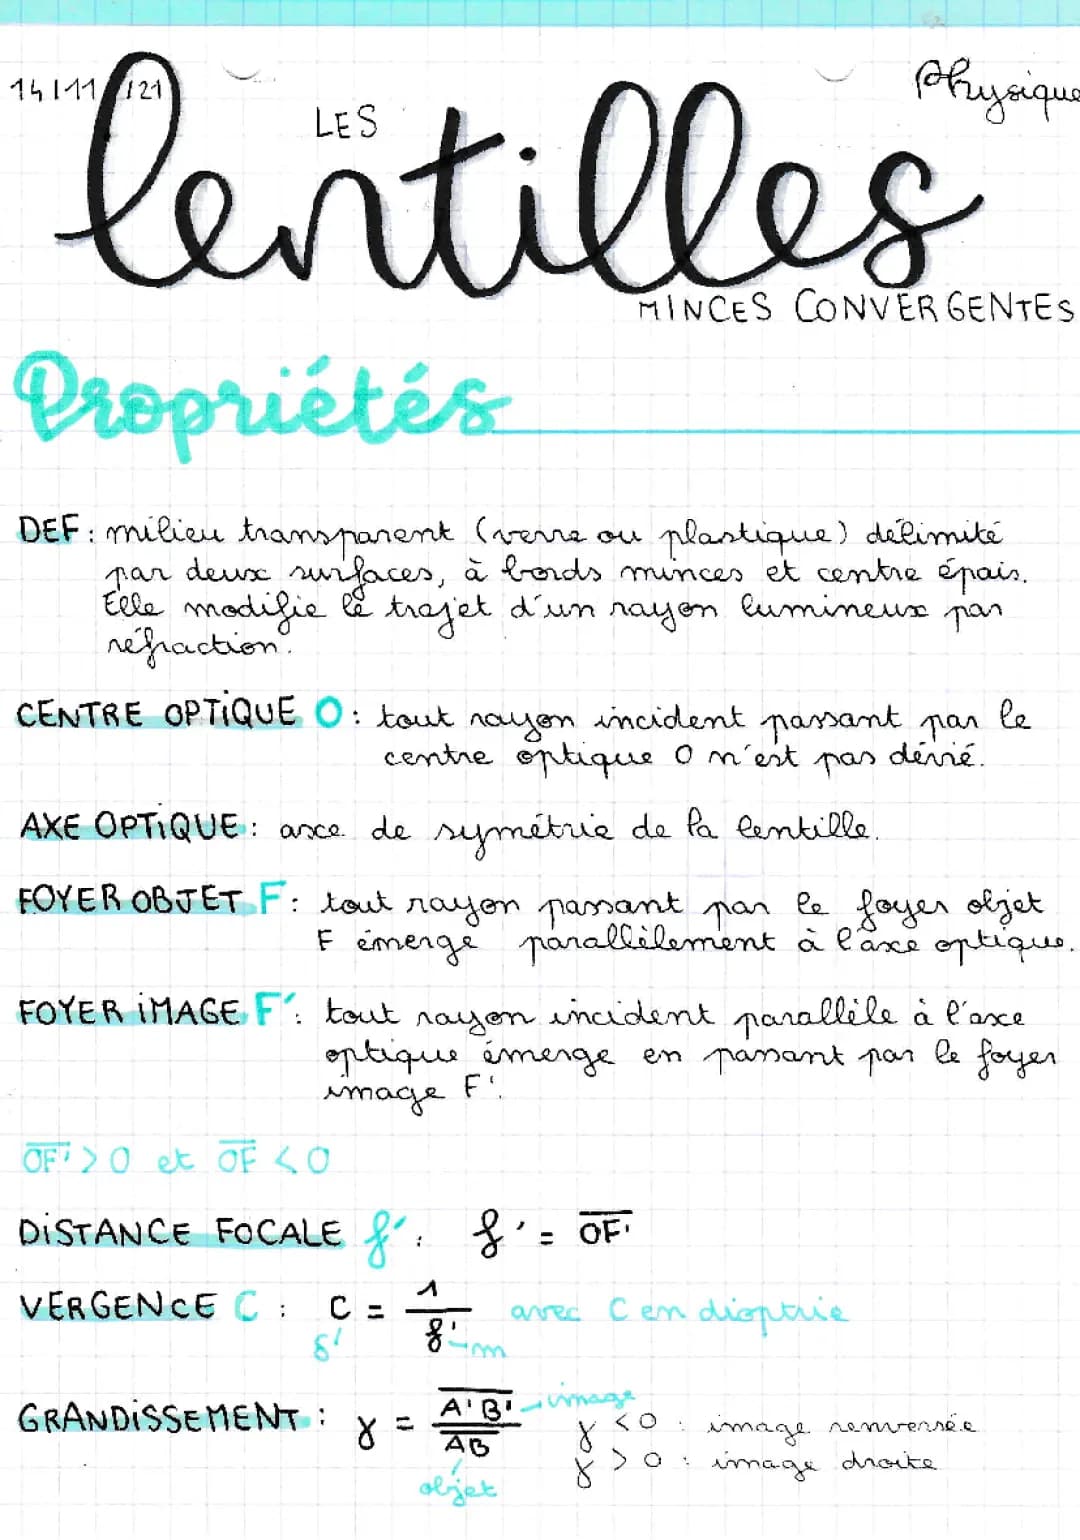 14/11/21
Physique
LES
lentilles
MINCES CONVERGENTES
Propriétés
DEF : milieu transparent (verre ou plastique) délimité
par deux surfaces, à bords minces et centre épais.
Elle modifie le trajet d'un rayon lumineux par
réfraction.
CENTRE OPTIQUE O : tout rayon incident passant par le
centre optique O n'est pas dévié.
AXE OPTIQUE : axe de symétrie de la lentille.
FOYER OBJET F : tout rayon passant par le foyer objet
F émerge parallèlement à l'axe optique.
FOYER IMAGE F' : tout rayon incident parallèle à l'axe
optique émerge en passant par le foyer
image F'.
OF' > 0 et OF < 0
DISTANCE FOCALE f' : f' = OF'
VERGENCE C : C = 1/f' avec C en dioptrie
δ' m
GRANDISSEMENT : γ = A'B'/AB
image
objet
γ < 0 : image renversée
γ > 0 : image droite